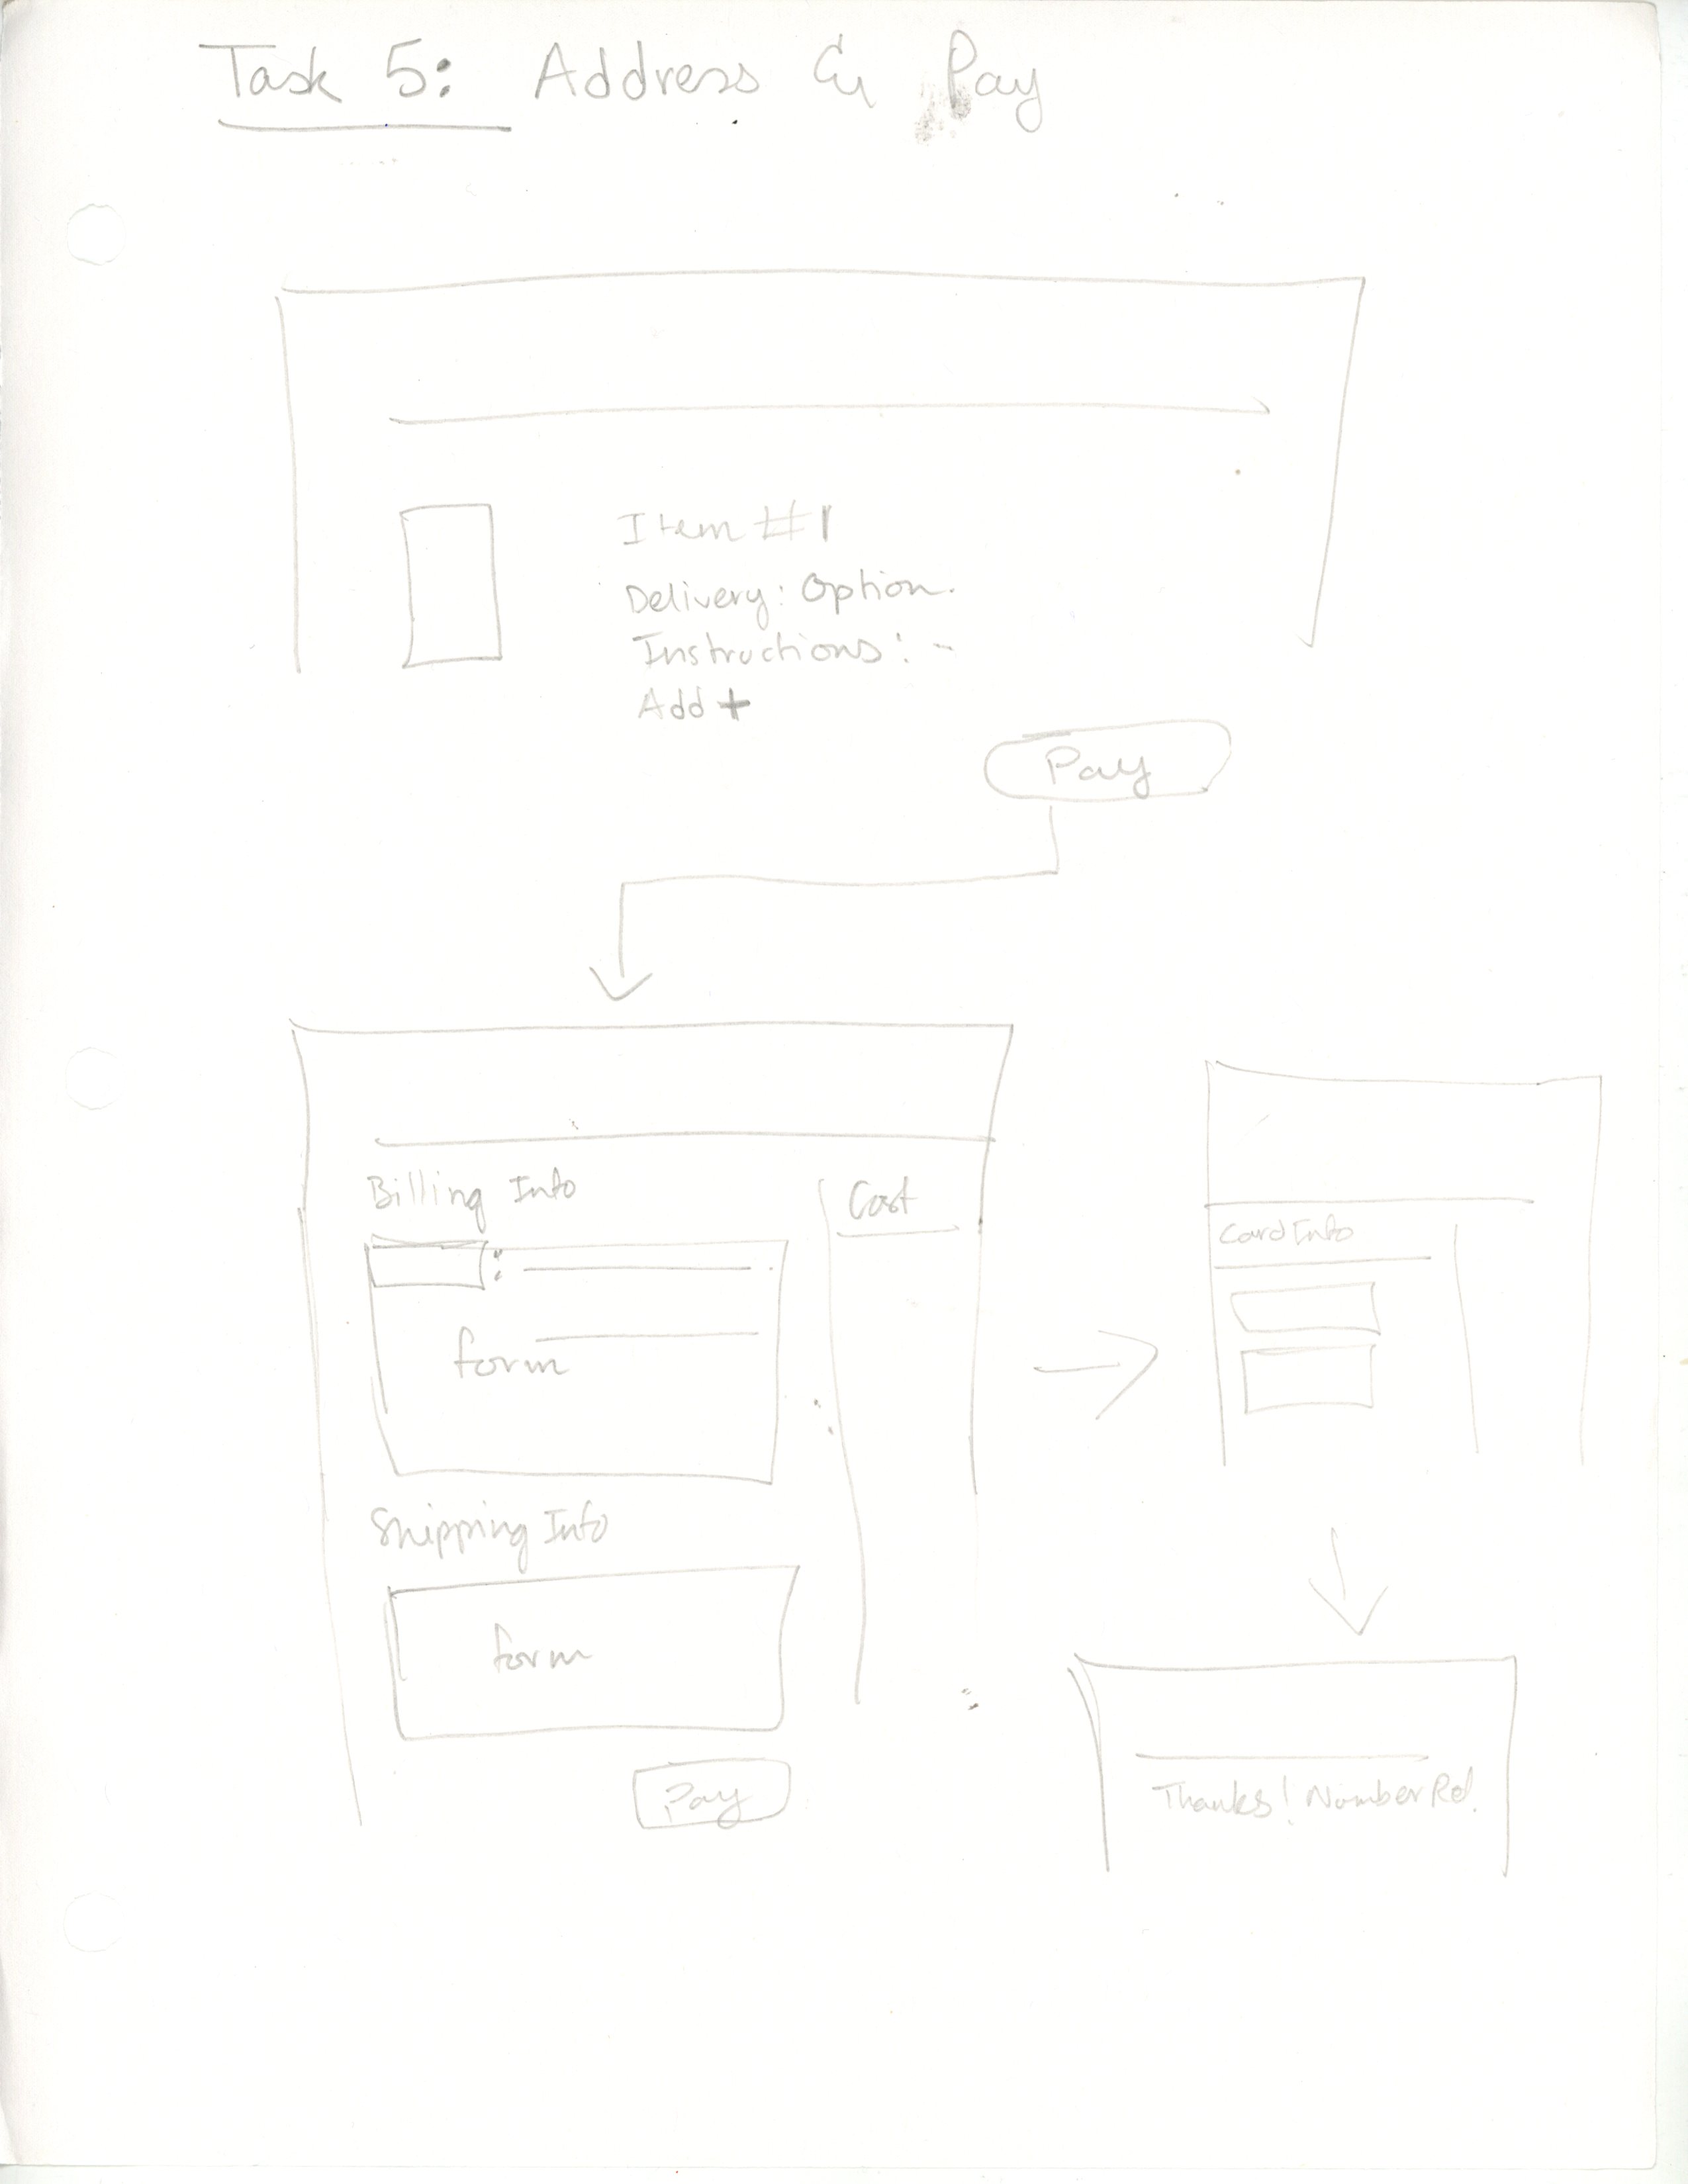 Task 5: Address & Pay
Item #1
Delivery: Option.
Instructions: -
Add +
Pay
Billing Info
Cost
:
form
Shipping Info
form
Pay
Card Info
Thanks! Number Ref.